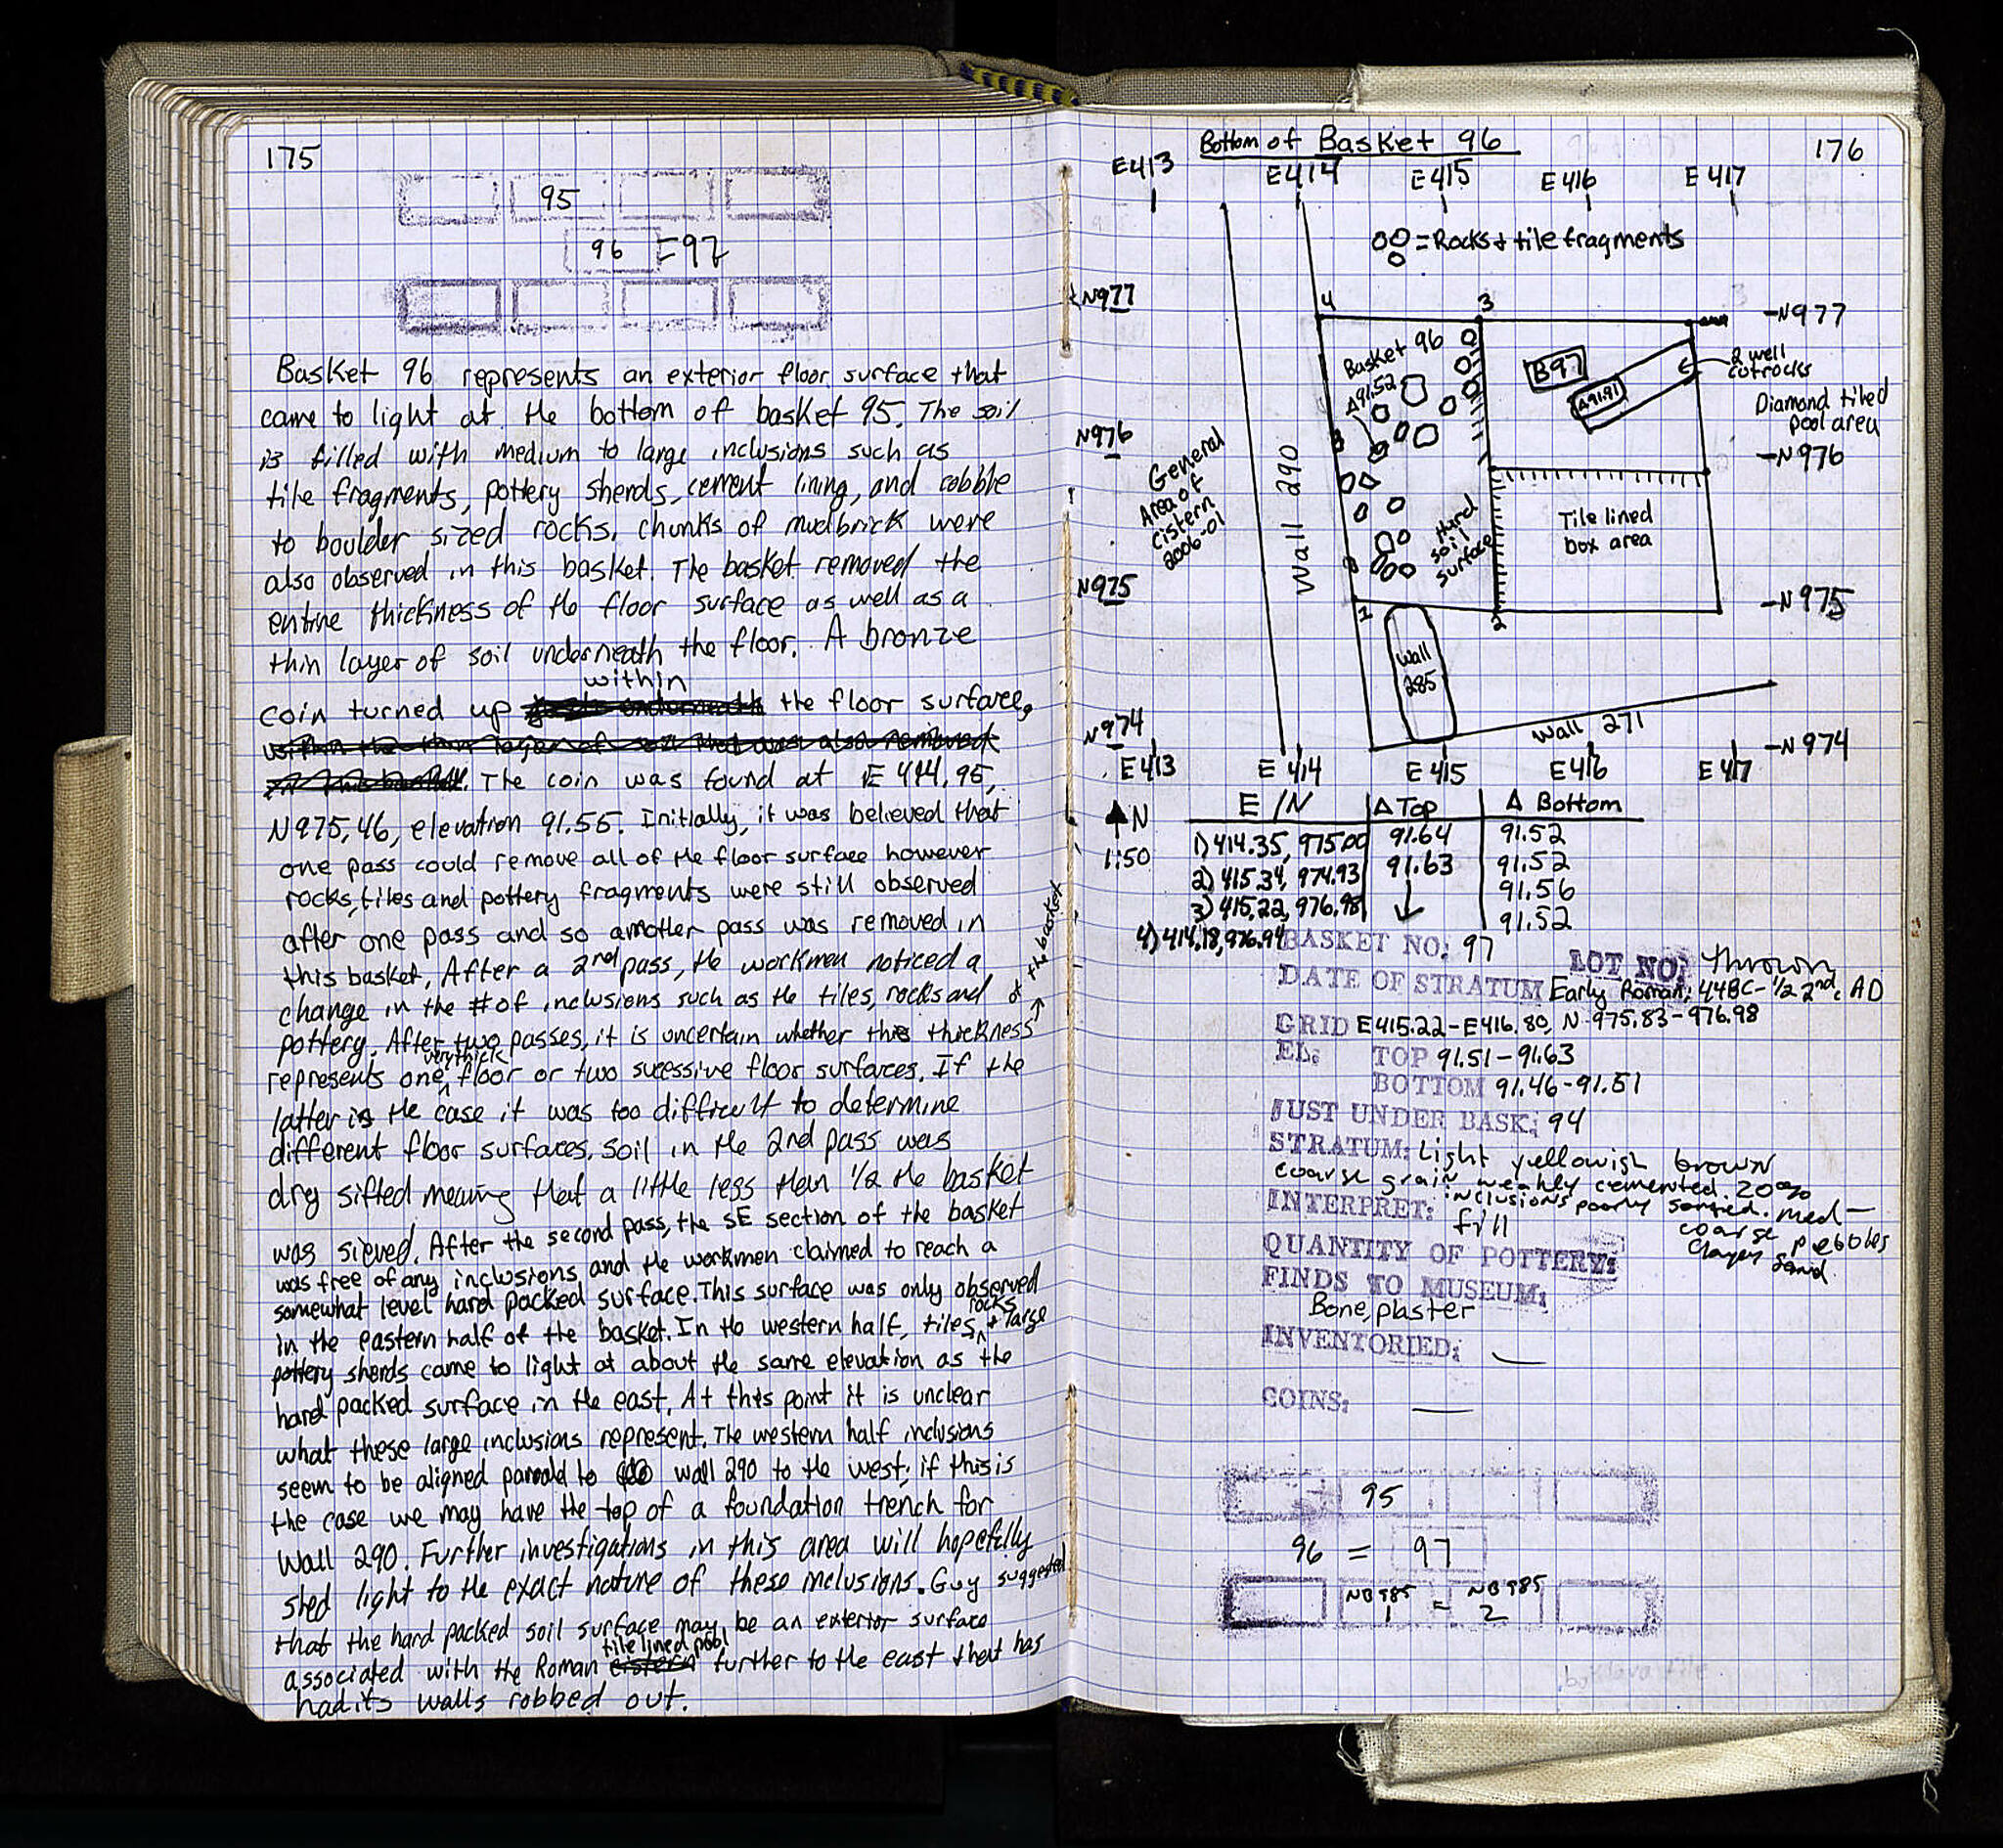 175
95
96 = 97
Basket 96 represents an exterior floor surface that
came to light at the bottom of basket 95. The soil
is filled with medium to large inclusions such as
tile fragments, pottery sherds, cement lining, and cobble
to boulder sized rocks. Chunks of mudbrick were
also observed in this basket. The basket removed the
entire thickness of the floor surface as well as a
thin layer of soil underneath the floor. A bronze
within
coin turned up the floor surface,
within the thin layer of soil that was also removed
in this basket. The coin was found at E 414.95,
N975.46, elevation 91.55. Initially, it was believed that
one pass could remove all of the floor surface however
rocks, tiles and pottery fragments were still observed
after one pass and so another pass was removed in
this basket. After a 2nd pass, the workmen noticed a
change in the # of inclusions such as the tiles, rocks and
pottery. After two passes, it is uncertain whether this thickness
of the basket
very thick
represents one floor or two sucessive floor surfaces. If the
latter is the case it was too difficult to determine
different floor surfaces. Soil in the 2nd pass was
dry sifted meaning that a little less than 1/2 the basket
was sieved. After the second pass, the SE section of the basket
was free of any inclusions and the workmen claimed to reach a
somewhat level hard packed surface. This surface was only observed
rocks
in the eastern half of the basket. In the western half, tiles, + large
pottery sherds came to light at about the same elevation as the
hard packed surface in the east. At this point it is unclear
what these large inclusions represent. The western half inclusions
seem to be aligned to wall 290 to the west; if this is
the case we may have the top of a foundation trench for
Wall 290. Further investigations in this area will hopefully
shed light to the exact nature of these inclusions. Guy suggested
that the hard packed soil surface may be an exterior surface
tile lined pool
associated with the Roman cistern further to the east that has
had its walls robbed out.
176
Bottom of Basket 96
E413
E414
E415
E416
E417
= Rocks + tile fragments
N977
4
3
-N977
Basket 96
Δ91.52
B97
Δ91.91
2 well
cut rocks
Diamond tiled
pool area
N976
-N976
General
Area of
Cistern
2006-01
Wall 290
Hard
soil
surface
Tile lined
box area
N975
-N975
1
2
Wall
285
Wall 271
N974
-N974
E413
E414
E415
E416
E417
N
1:50
E / N Δ Top Δ Bottom
1) 414.35, 975.00 91.64 91.52
2) 415.34, 974.93 91.63 91.52
3) 415.22, 976.98 ↓ 91.56
4) 414.18, 976.94 91.52
BASKET NO: 97
LOT NO: Thrown
DATE OF STRATUM Early Roman; 44BC-1/2 2nd c AD
GRID E415.22-E416.80, N-975.83-976.98
EL: TOP 91.51-91.63
BOTTOM 91.46-91.51
JUST UNDER BASK: 94
STRATUM: Light yellowish brown
coarse grain weakly cemented. 20%
inclusions poorly sorted. med-
coarse pebbles
clayey sand.
INTERPRET: fill
QUANTITY OF POTTERY:
FINDS TO MUSEUM:
Bone, plaster
INVENTORIED: —
COINS: —
95
96 = 97
NB985 NB985
1 = 2